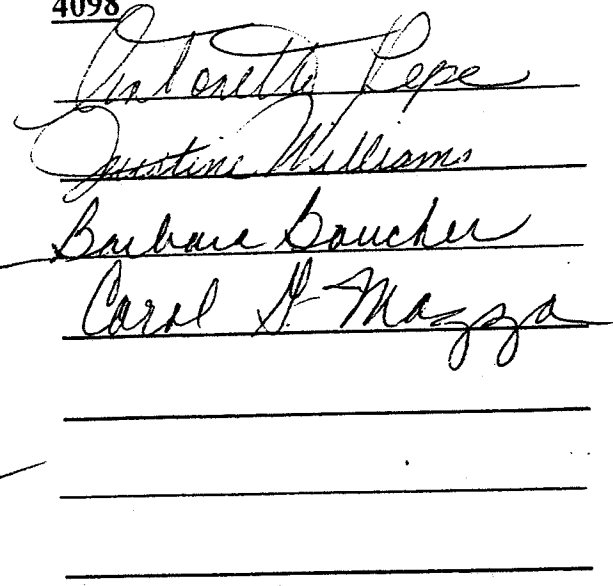 4098
Antonetta Pepe
Justine Williams
Barbara Boucher
Carol G. Mazza